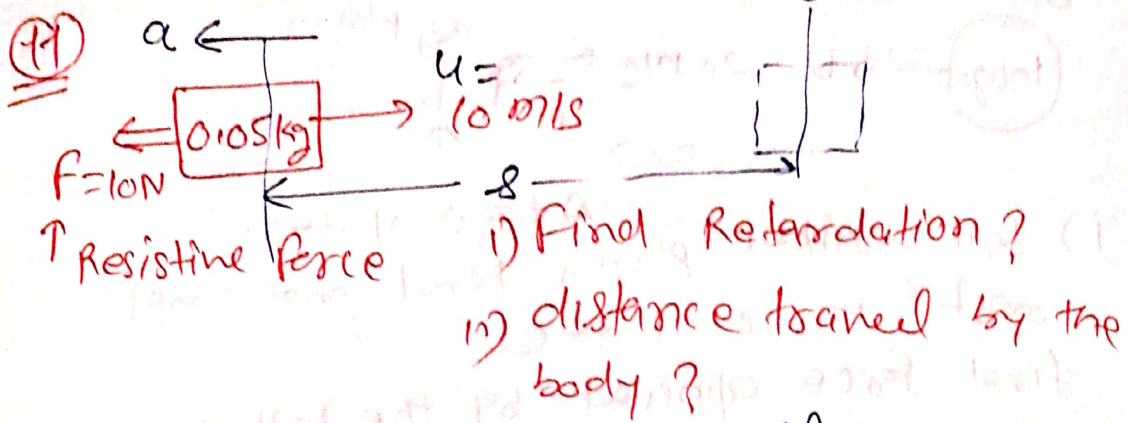 11
a
u=
10 m/s
0.05kg
f=10N
s
↑ Resistive force
i) Find Retardation ?
ii) distance traveel by the
body ?